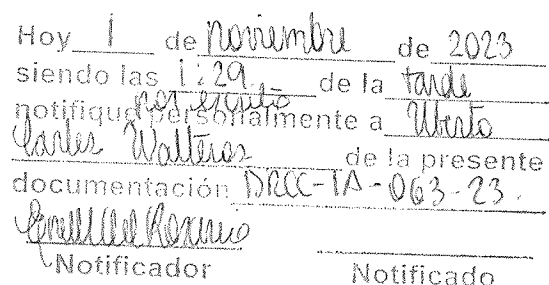 Hoy 1 de noviembre de 2023
siendo las 1:29 de la tarde
por escrito
notifique personalmente a Uberto
Carles Walteros de la presente
documentación DRCC-IA-063-23.
Notificador Notificado